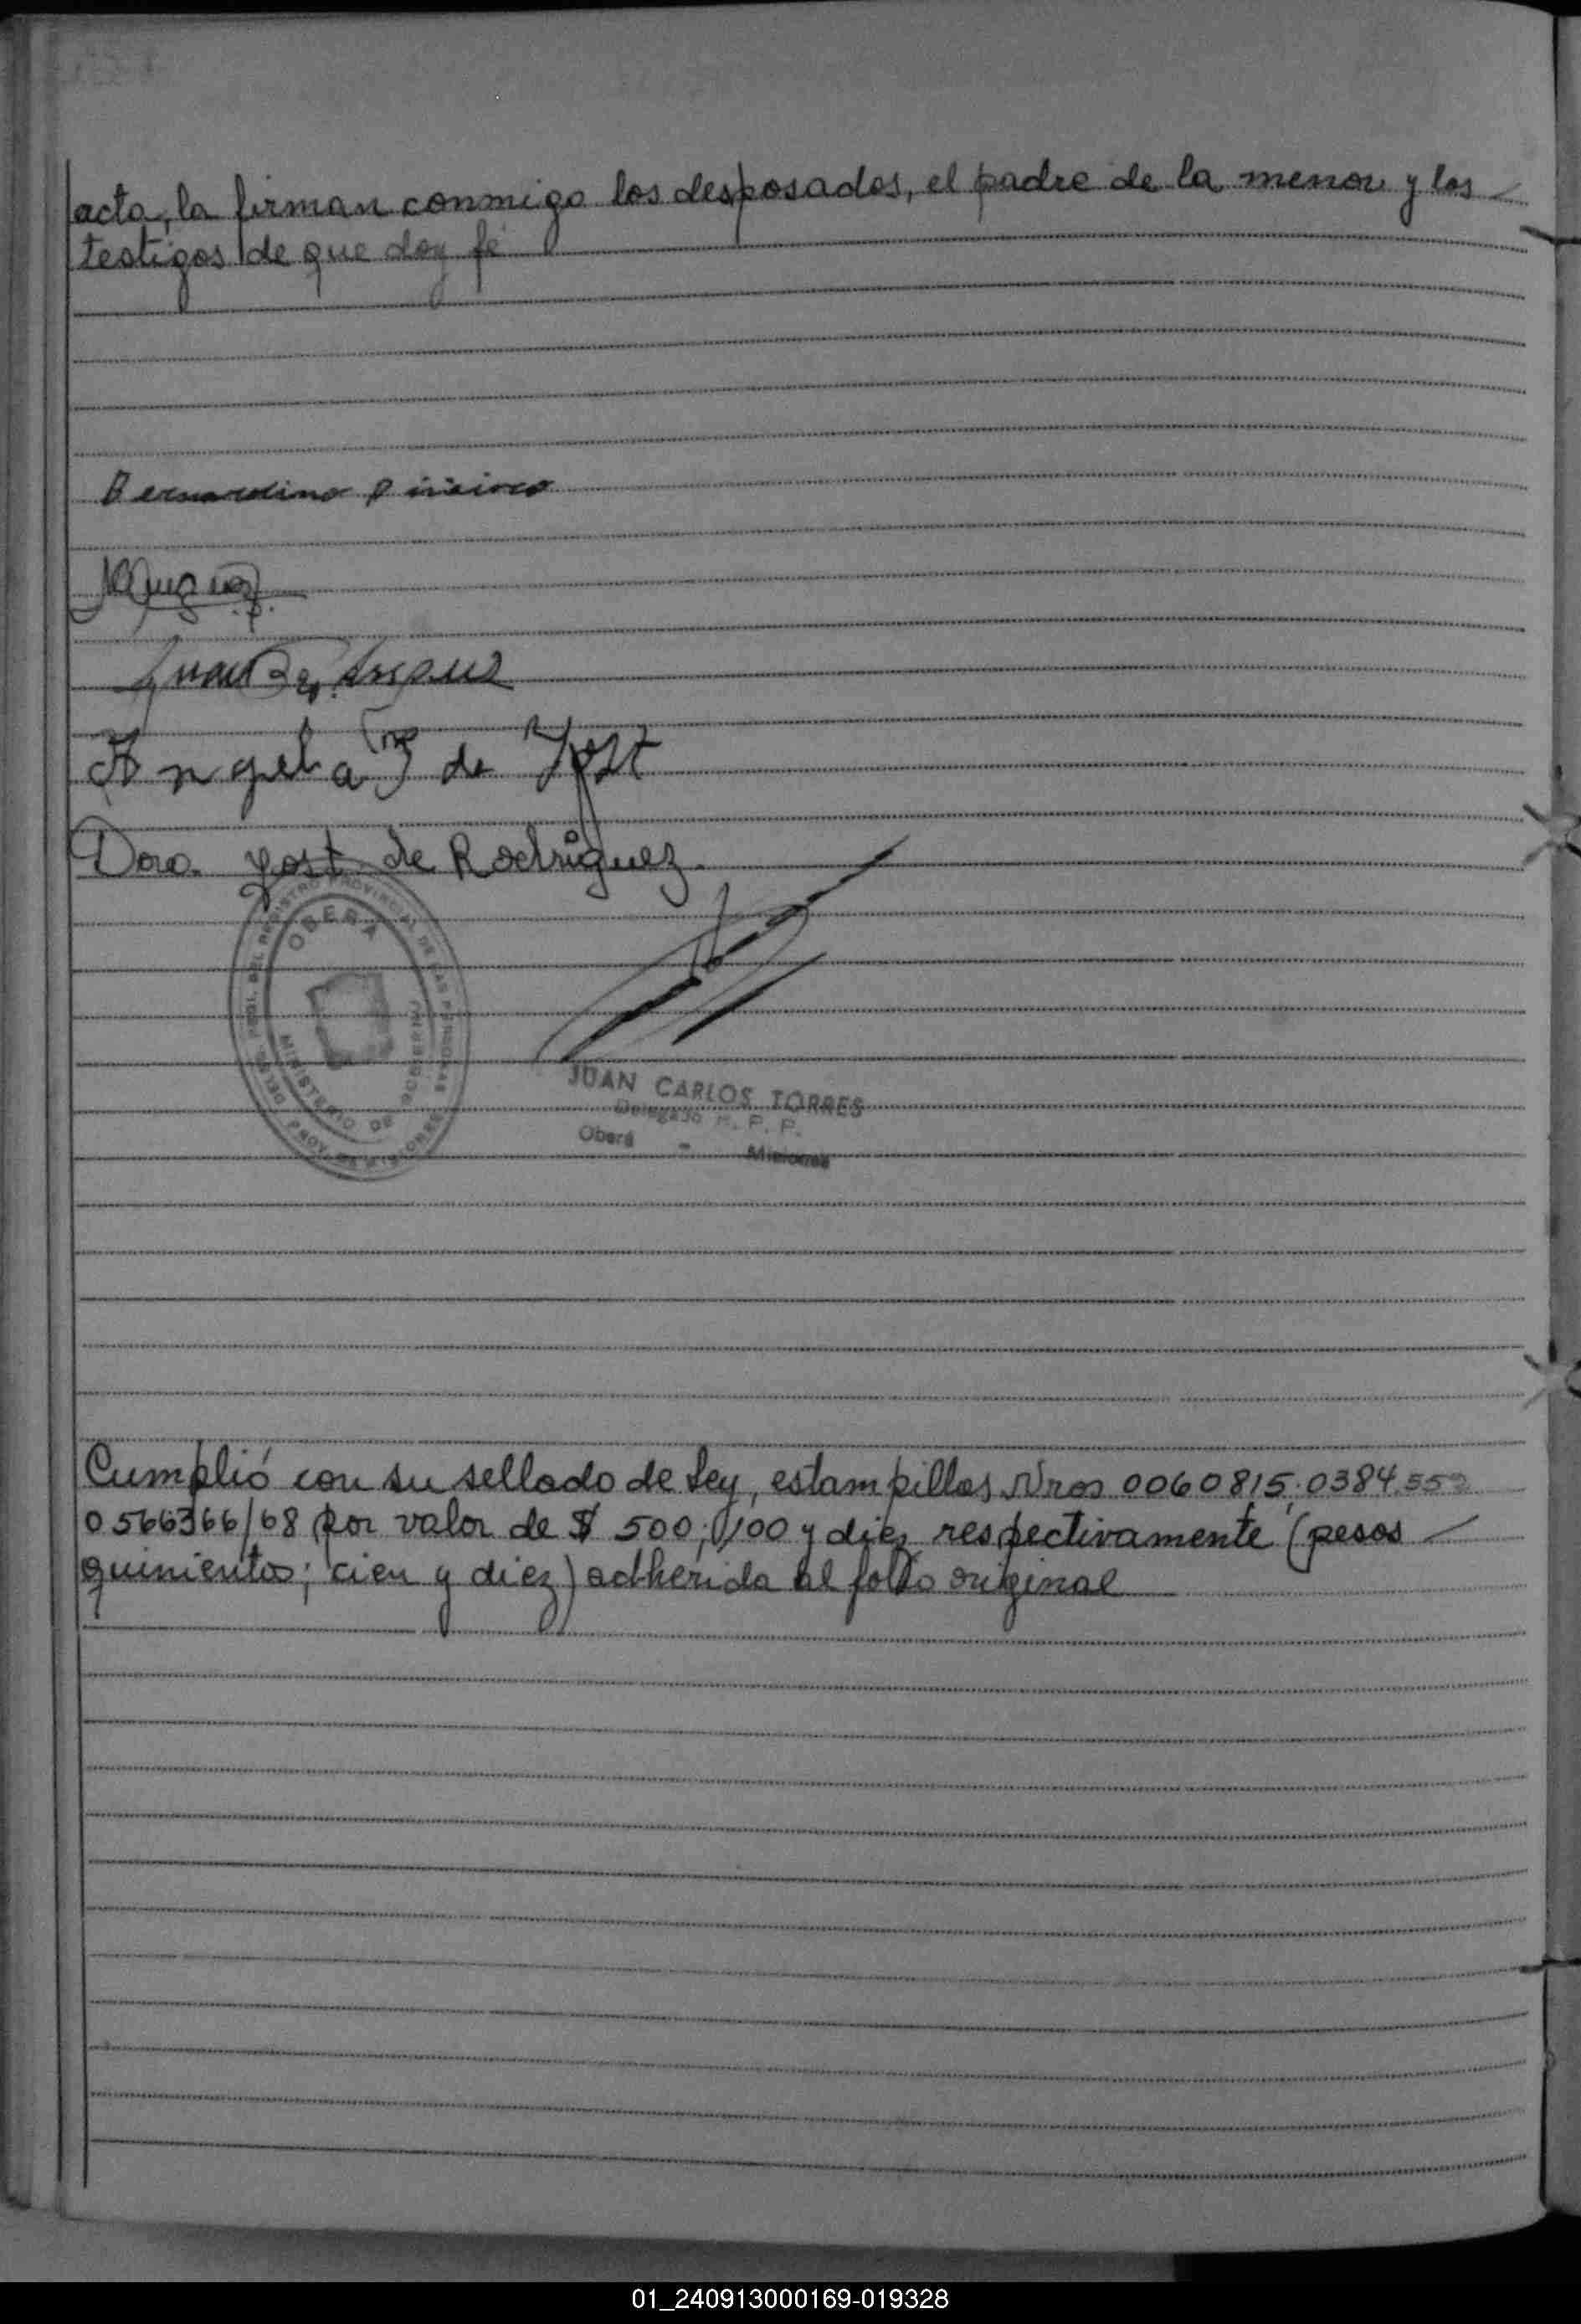 acta, la firman conmigo los desposados, el padre de la menor y los
testigos de que doy fé
Bernardino
Angela de Yost
Dora Yost de Rodriguez.
OBERA
MINISTERIO DE GOBIERNO
DEL REGISTRO PROVINCIAL DE LAS PERSONAS
PROV. DE MISIONES
JUAN CARLOS TORRES
Delegado R. P. P.
Oberá - Misiones
Cumplió con su sellado de Ley, estampillas Nros 0060815; 0384.552
0566366/68 por valor de $ 500; 100 y diez respectivamente (pesos
quinientos; cien y diez) adherida al folio original
01_240913000169-019328